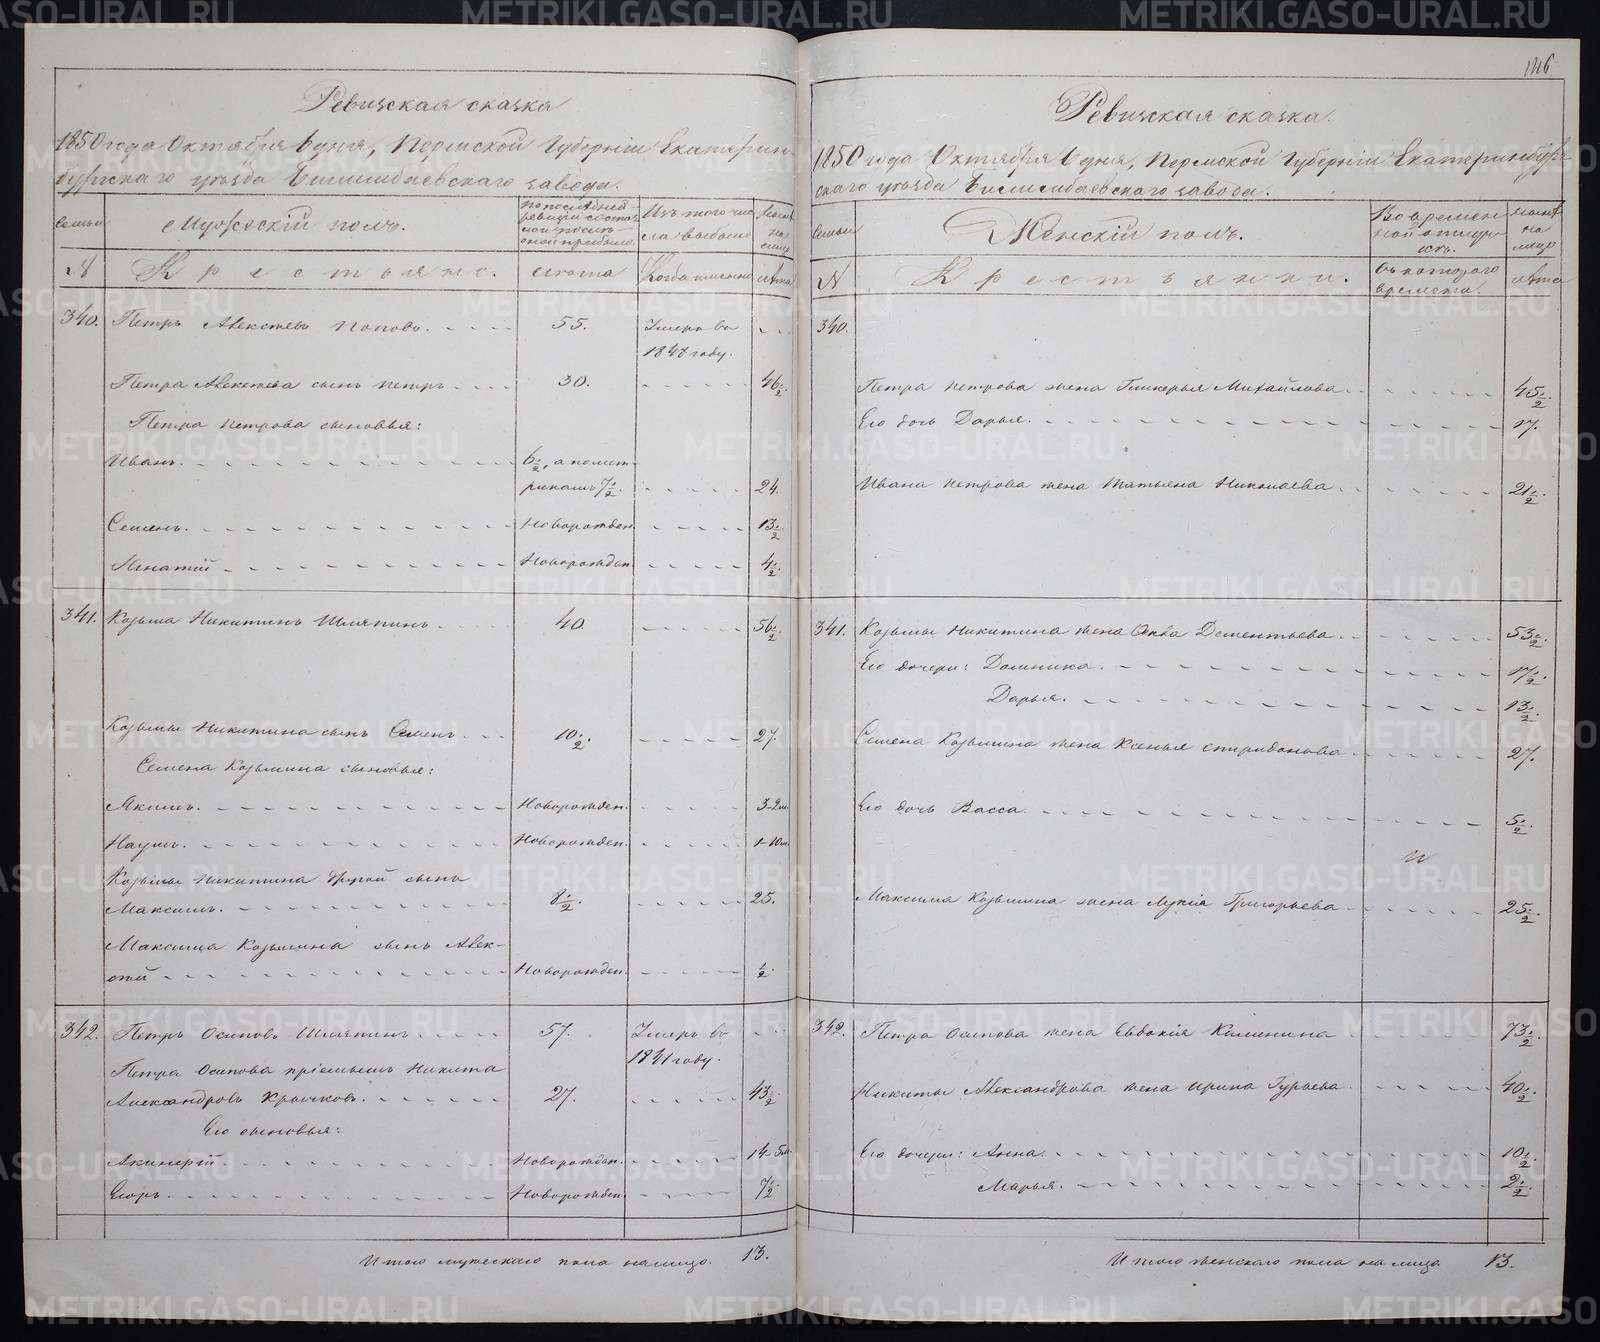 146
Ревизская сказка
1850 года Октября 6 дня, Пермской Губерніи Екатерин-
бургскаго уѣзда Билимбаевскаго завода.
Семьи
Мужескій полъ.
По послѣдней ревизіи состояло и послѣ оной прибыло.
Изъ того числа выбыло
Нынѣ на лицо
№
Крестьяне.
лѣта
Когда именно
лѣта
340. Петръ Алексѣевъ Поповъ. 55. Умеръ въ
1848 году.
Петра Алексѣева сынъ Петръ. 30. 46½.
Петра Петрова сыновья:
Иванъ. 6½, а по мет-
рикамъ 7½. 24.
Семенъ. Новорожден. 13½.
Игнатій Новорожден. 4½.
341. Козьма Никитинъ Шляпинъ. 40. 56½.
Козьмы Никитина сынъ Семенъ. 10½. 27.
Семена Козьмина сыновья:
Якимъ. Новорожден. 3-2м.
Наумъ. Новорожден. 1-10м.
Козьмы Никитина другой сынъ
Максимъ. 8½. 25.
Максима Козьмина сынъ Алек-
сѣй Новорожден. ½.
342. Петръ Осиповъ Шляпинъ. 57. Умеръ въ
1841 году.
Петра Осипова пріемышъ Никита
Александровъ Крючковъ. 27. 43½.
Его сыновья:
Новорожден. 14-5м.
Егоръ. Новорожден. 7½.
Итого мужескаго пола налицо. 13.
Ревизская сказка.
1850 года Октября 6 дня, Пермской Губерніи Екатеринбург-
скаго уѣзда Билимбаевскаго завода.
Семьи
Женскій полъ.
Во времен-
ной отлуч-
кѣ.
Нынѣ
на
лицо
№
Крестьянки.
Съ котораго
времени.
лѣта
340.
Петра Петрова жена Гликерья Михайлова. 45½.
Его дочь Дарья. 17.
Ивана Петрова жена Татьяна Николаева. 21½.
341. Козьмы Никитина жена Дементьева. 53½.
Его дочери: Домника. 17½.
Дарья. 13½.
Семена Козьмина жена Ксенья Спиридонова. 27.
Его дочь Васса. 5½.
Максима Козьмина жена Лукія Григорьева 25½.
342. Петра Осипова жена Евдокія Калинина 73½.
Никиты Александрова жена Ирина Гурьева. 40½.
Его дочери: Анна. 10½.
Марья. 2½.
Итого женскаго пола налицо 13.
METRIKI.GASO-URAL.RU